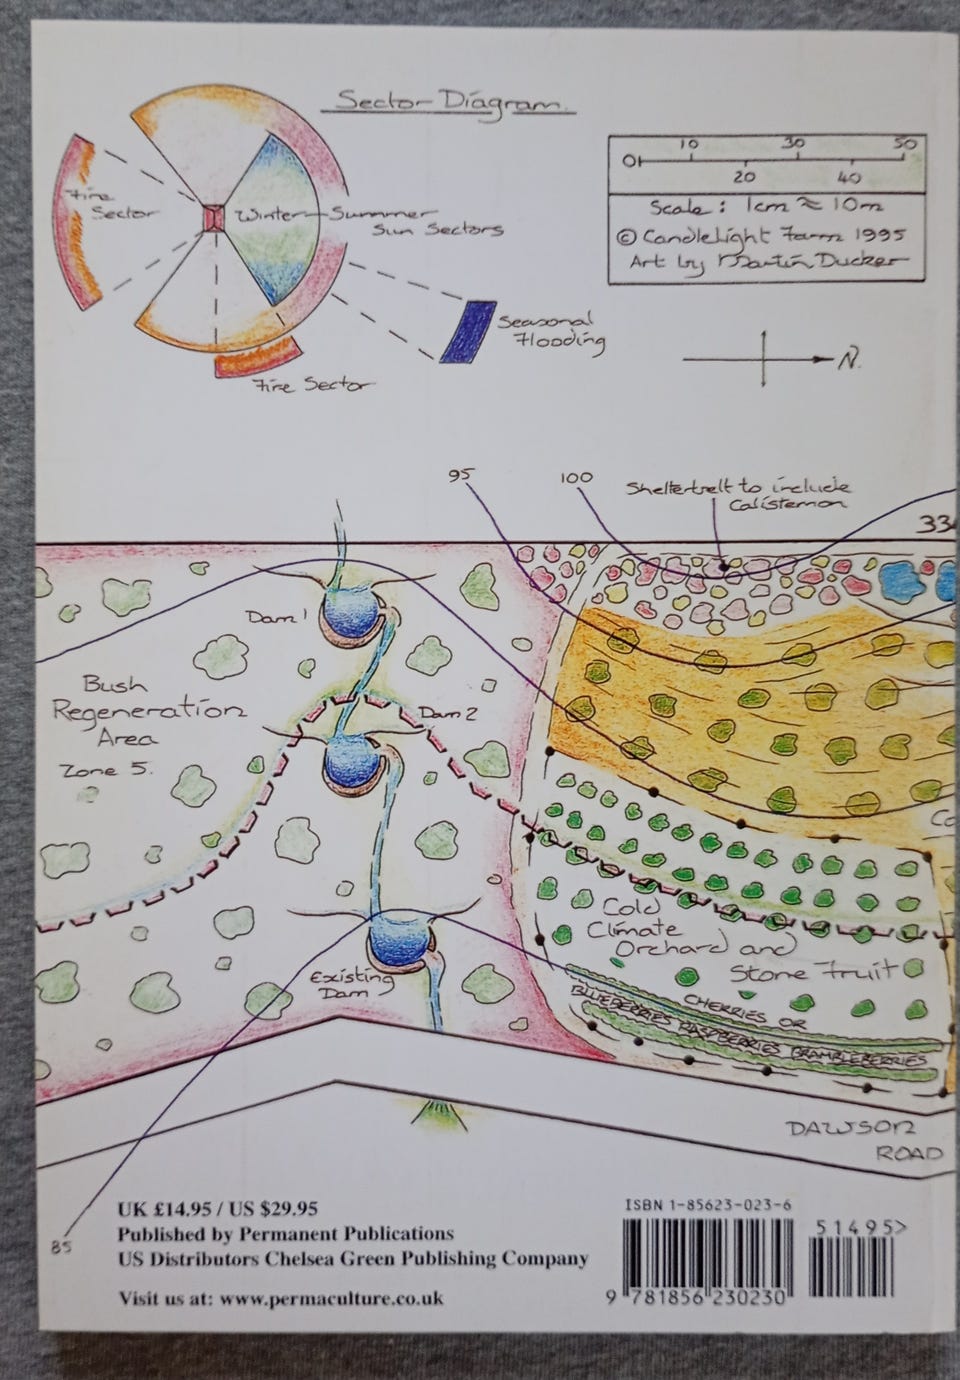 Sector Diagram.
Fire
Sector
Winter Summer
Sun Sectors
Seasonal
Flooding
Fire Sector
10 30 50
0
20 40
Scale: 1cm ≈ 10m
© Candlelight Farm 1995
Art by Martin Ducker
N.
95
100
Shelterbelt to include
Calistemon
33
Dam 1
Bush
Regeneration
Area
Zone 5.
Dam 2
Co
Cold
Climate
Orchard and
Stone Fruit
Existing
Dam
CHERRIES OR
BLUEBERRIES RASPBERRIES BRAMBLEBERRIES
DAWSON
ROAD
85
UK £14.95 / US $29.95
Published by Permanent Publications
US Distributors Chelsea Green Publishing Company
Visit us at: www.permaculture.co.uk
ISBN 1-85623-023-6
51495>
9 781856 230230